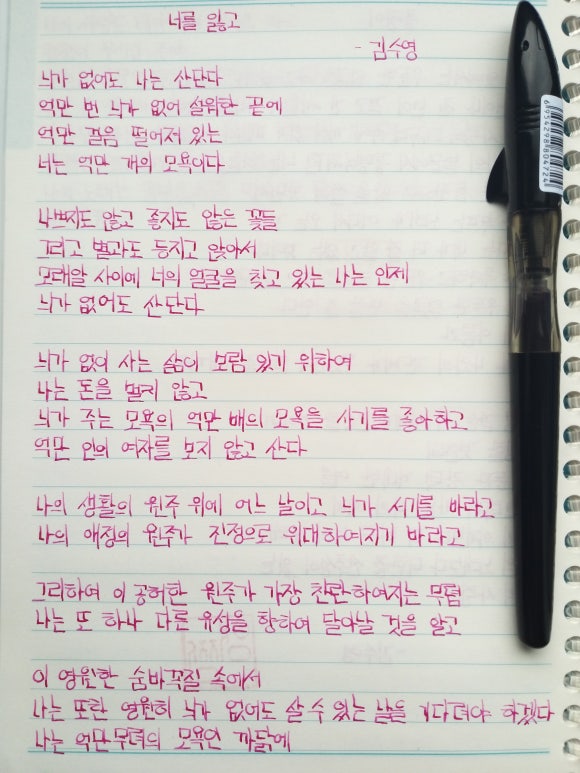 너를 잃고
- 김수영
늬가 없어도 나는 산단다
억만 번 늬가 없어 설워한 끝에
억만 걸음 떨어져 있는
너는 억만 개의 모욕이다
나쁘지도 않고 좋지도 않은 꽃들
그리고 별과도 등지고 앉아서
모래알 사이에 너의 얼굴을 찾고 있는 나는 인제
늬가 없어도 산단다
늬가 없이 사는 삶이 보람 있기 위하여
나는 돈을 벌지 않고
늬가 주는 모욕의 억만 배의 모욕을 사기를 좋아하고
억만 인의 여자를 보지 않고 산다
나의 생활의 원주 위에 어느 날이고 늬가 서기를 바라고
나의 애정의 원주가 진정으로 위대하여지기 바라고
그리하여 이 공허한 원주가 가장 찬란하여지는 무렵
나는 또 하나 다른 유성을 향하여 달아날 것을 알고
이 영원한 숨바꼭질 속에서
나는 또한 영원히 늬가 없어도 살 수 있는 날을 기다려야 하겠다
나는 억만무려의 모욕인 까닭에
6954298804724